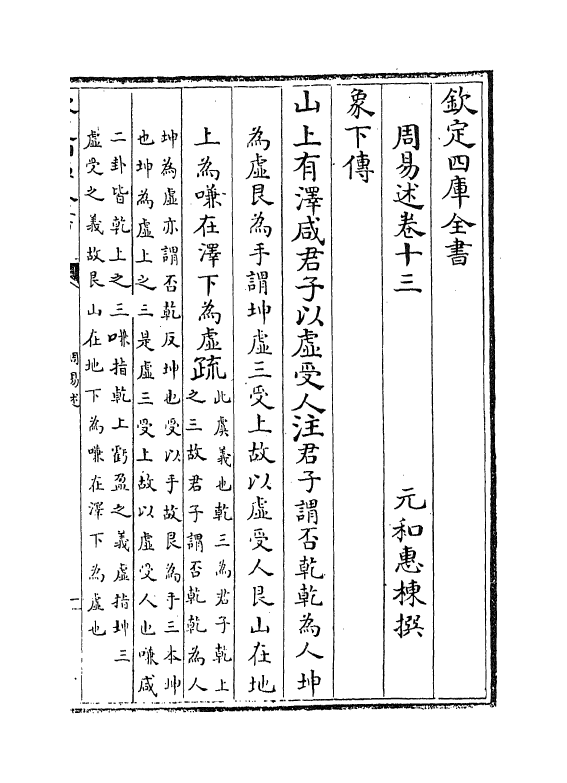 欽定四庫全書
周易述卷十三
元和惠棟撰
象下傳
山上有澤咸君子以虛受人注君子謂否乾乾為人坤
為虛艮為手謂坤虛三受上故以虛受人艮山在地
上為嗛在澤下為虛疏此虞義也乾三為君子乾上
之三故君子謂否乾乾為人
坤為虛亦謂否乾反坤也受以手故艮為手三本坤
也坤為虛上之三是虛三受上故以虛受人也嗛咸
二卦皆乾上之三嗛指乾上虧盈之義虛指坤三
虛受之義故艮山在地下為嗛在澤下為虛也
周易述
一